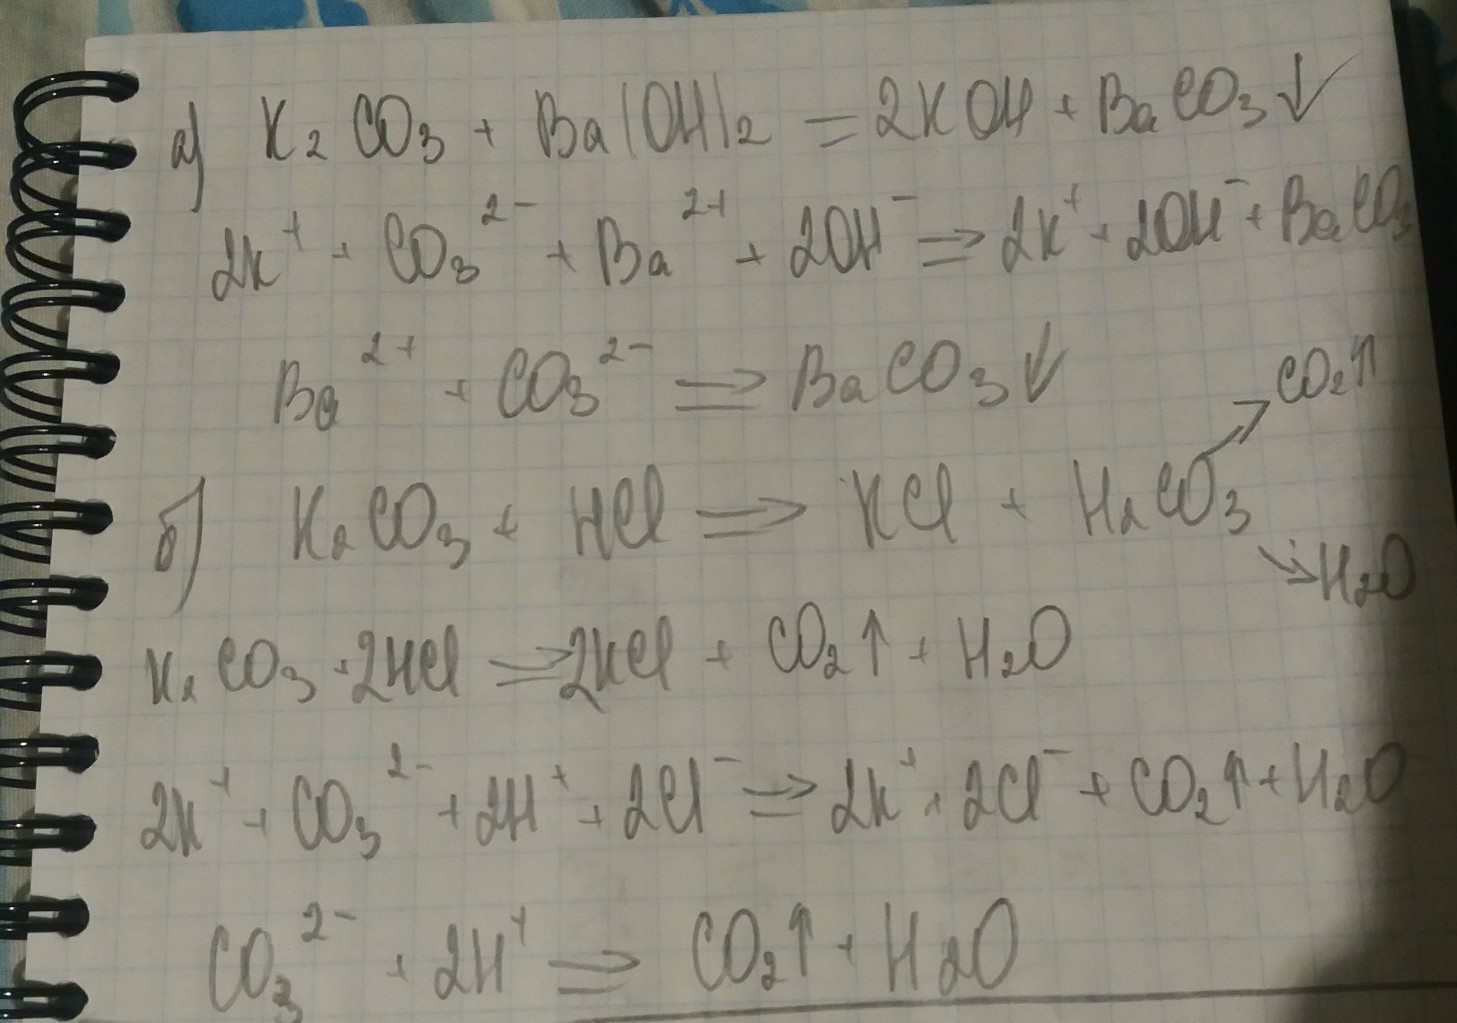 а) K₂CO₃ + Ba(OH)₂ = 2KOH + BaCO₃↓
2K⁺ + CO₃²⁻ + Ba²⁺ + 2OH⁻ ⇒ 2K⁺ + 2OH⁻ + BaCO₃
Ba²⁺ + CO₃²⁻ ⇒ BaCO₃↓
б) K₂CO₃ + HCl ⇒ KCl + H₂CO₃ ↗ CO₂↑
↘ H₂O
K₂CO₃ + 2HCl ⇒ 2KCl + CO₂↑ + H₂O
2K⁺ + CO₃²⁻ + 2H⁺ + 2Cl⁻ ⇒ 2K⁺ + 2Cl⁻ + CO₂↑ + H₂O
CO₃²⁻ + 2H⁺ ⇒ CO₂↑ + H₂O